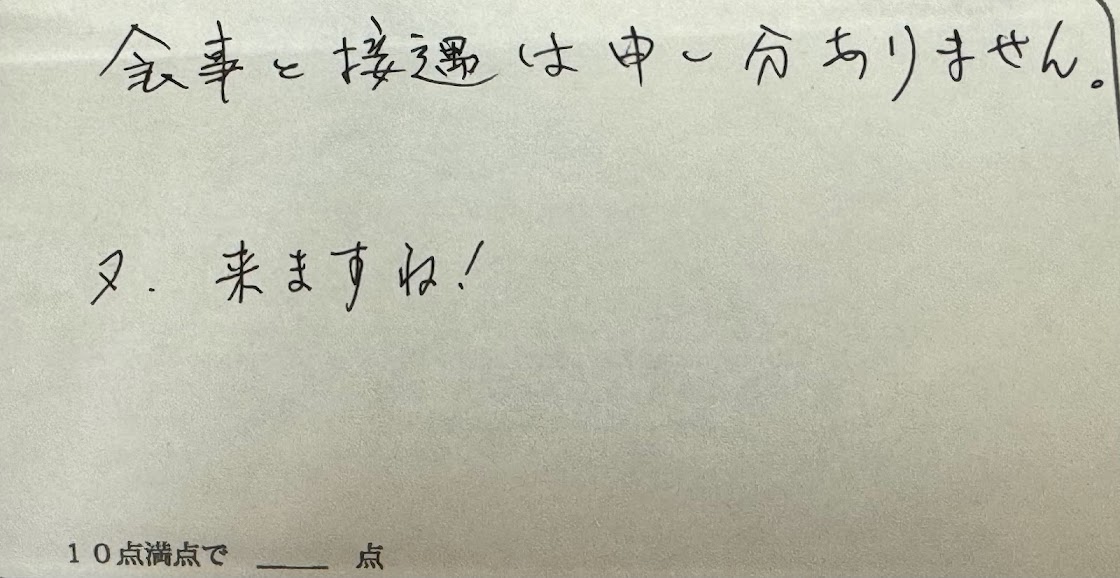 食事と接遇は申し分ありません。
又.来ますね!
10点満点で ____ 点